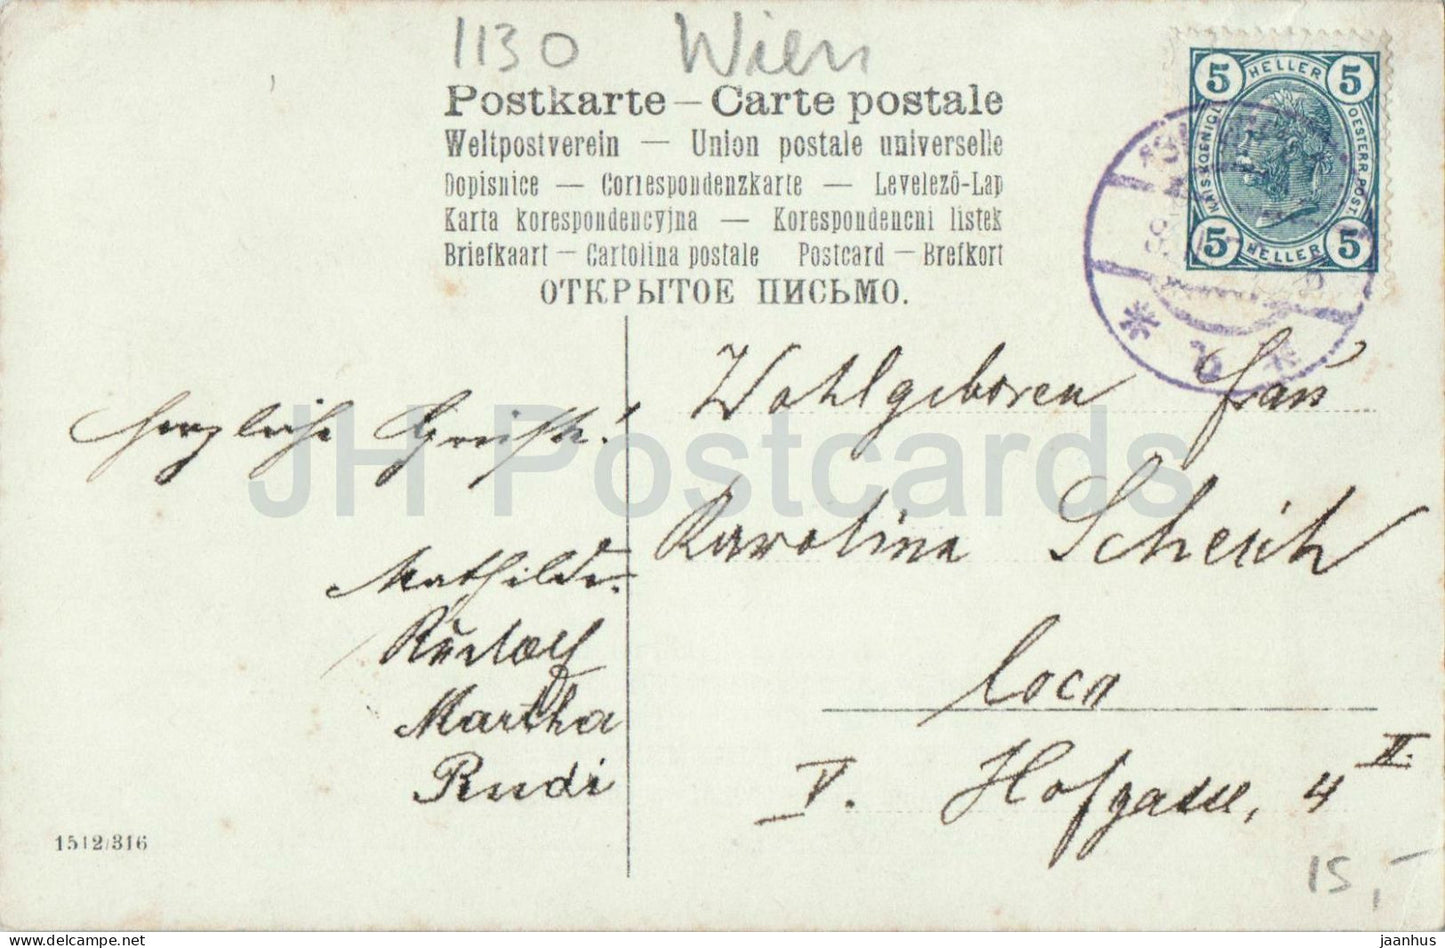 1130 Wien
Postkarte – Carte postale
Weltpostverein — Union postale universelle
Dopisnice — Correspondenzkarte — Levelező-Lap
Karta korespondencyjna — Korespondencni listek
Briefkaart – Cartolina postale Postcard – Brefkort
ОТКРЫТОЕ ПИСЬМО.
5 HELLER 5
KAIS. KOENIGL. OESTERR. POST
5 HELLER 5
Wohlgeboren Frau
Karolina Scheich
loco
V. Hofgasse, 4 II.
Herzliche Grüße!
Mathilde
Rudolf
Martha
Rudi
1512/316
15,-
JH Postcards
www.delcampe.net
jaanhus